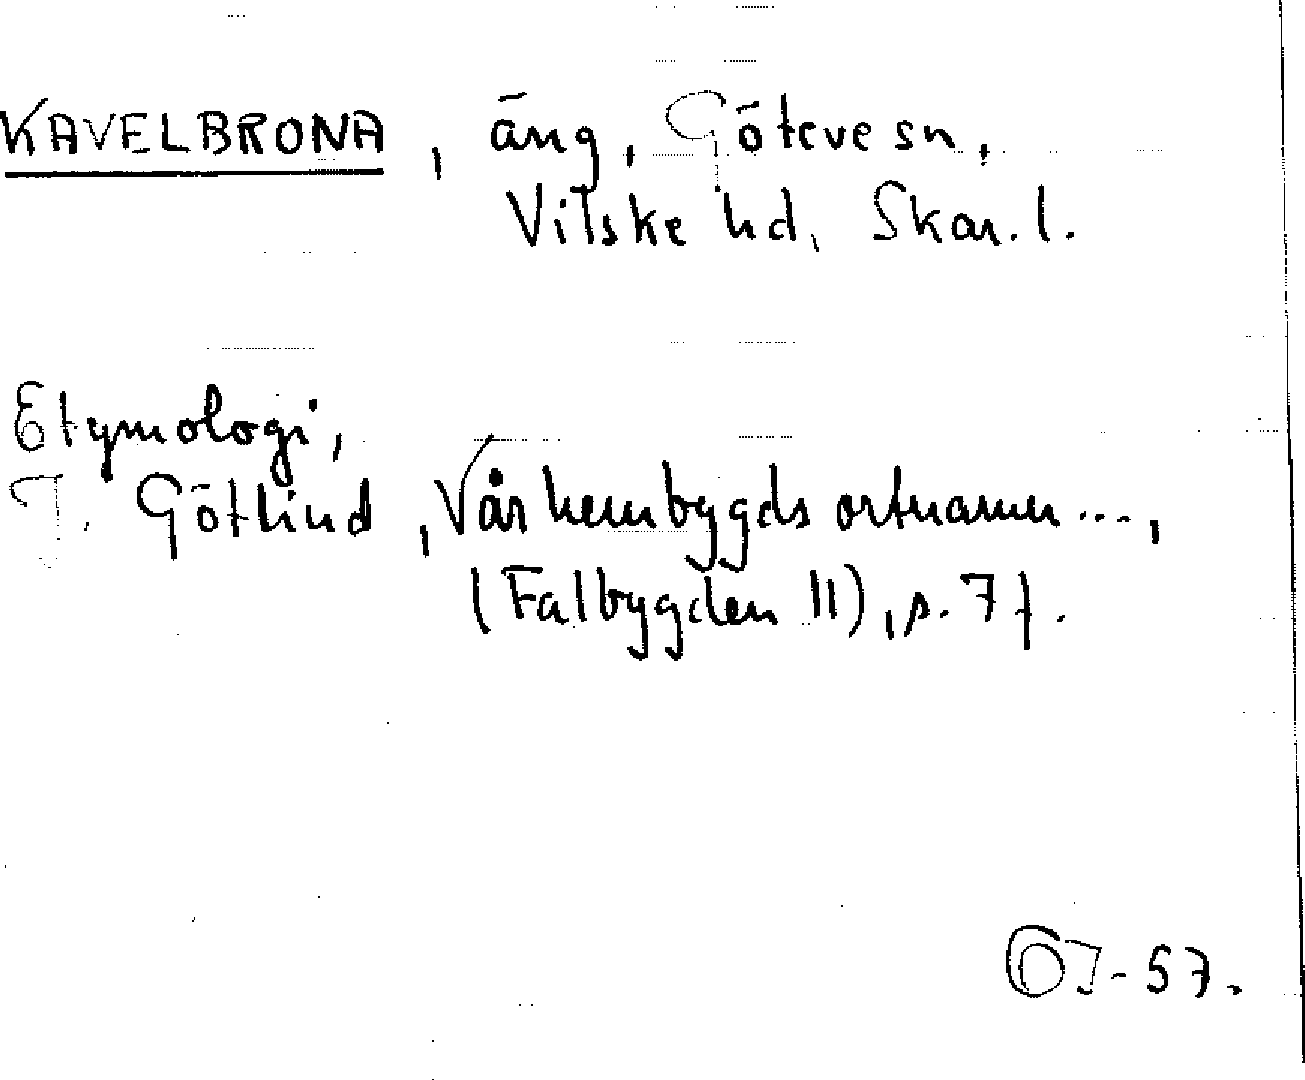 KAVELBRONA, äng, Göteve sn,
Vilske hd, Skar. l.
Etymologi,
J. Götlind, Vår hembygds ortnamn...,
(Falbygden II), s. 7f.
OJ-57.